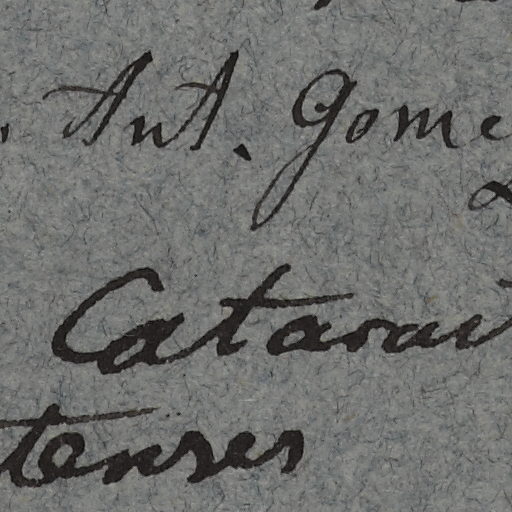 Ant. Gome
Catarac
tenses